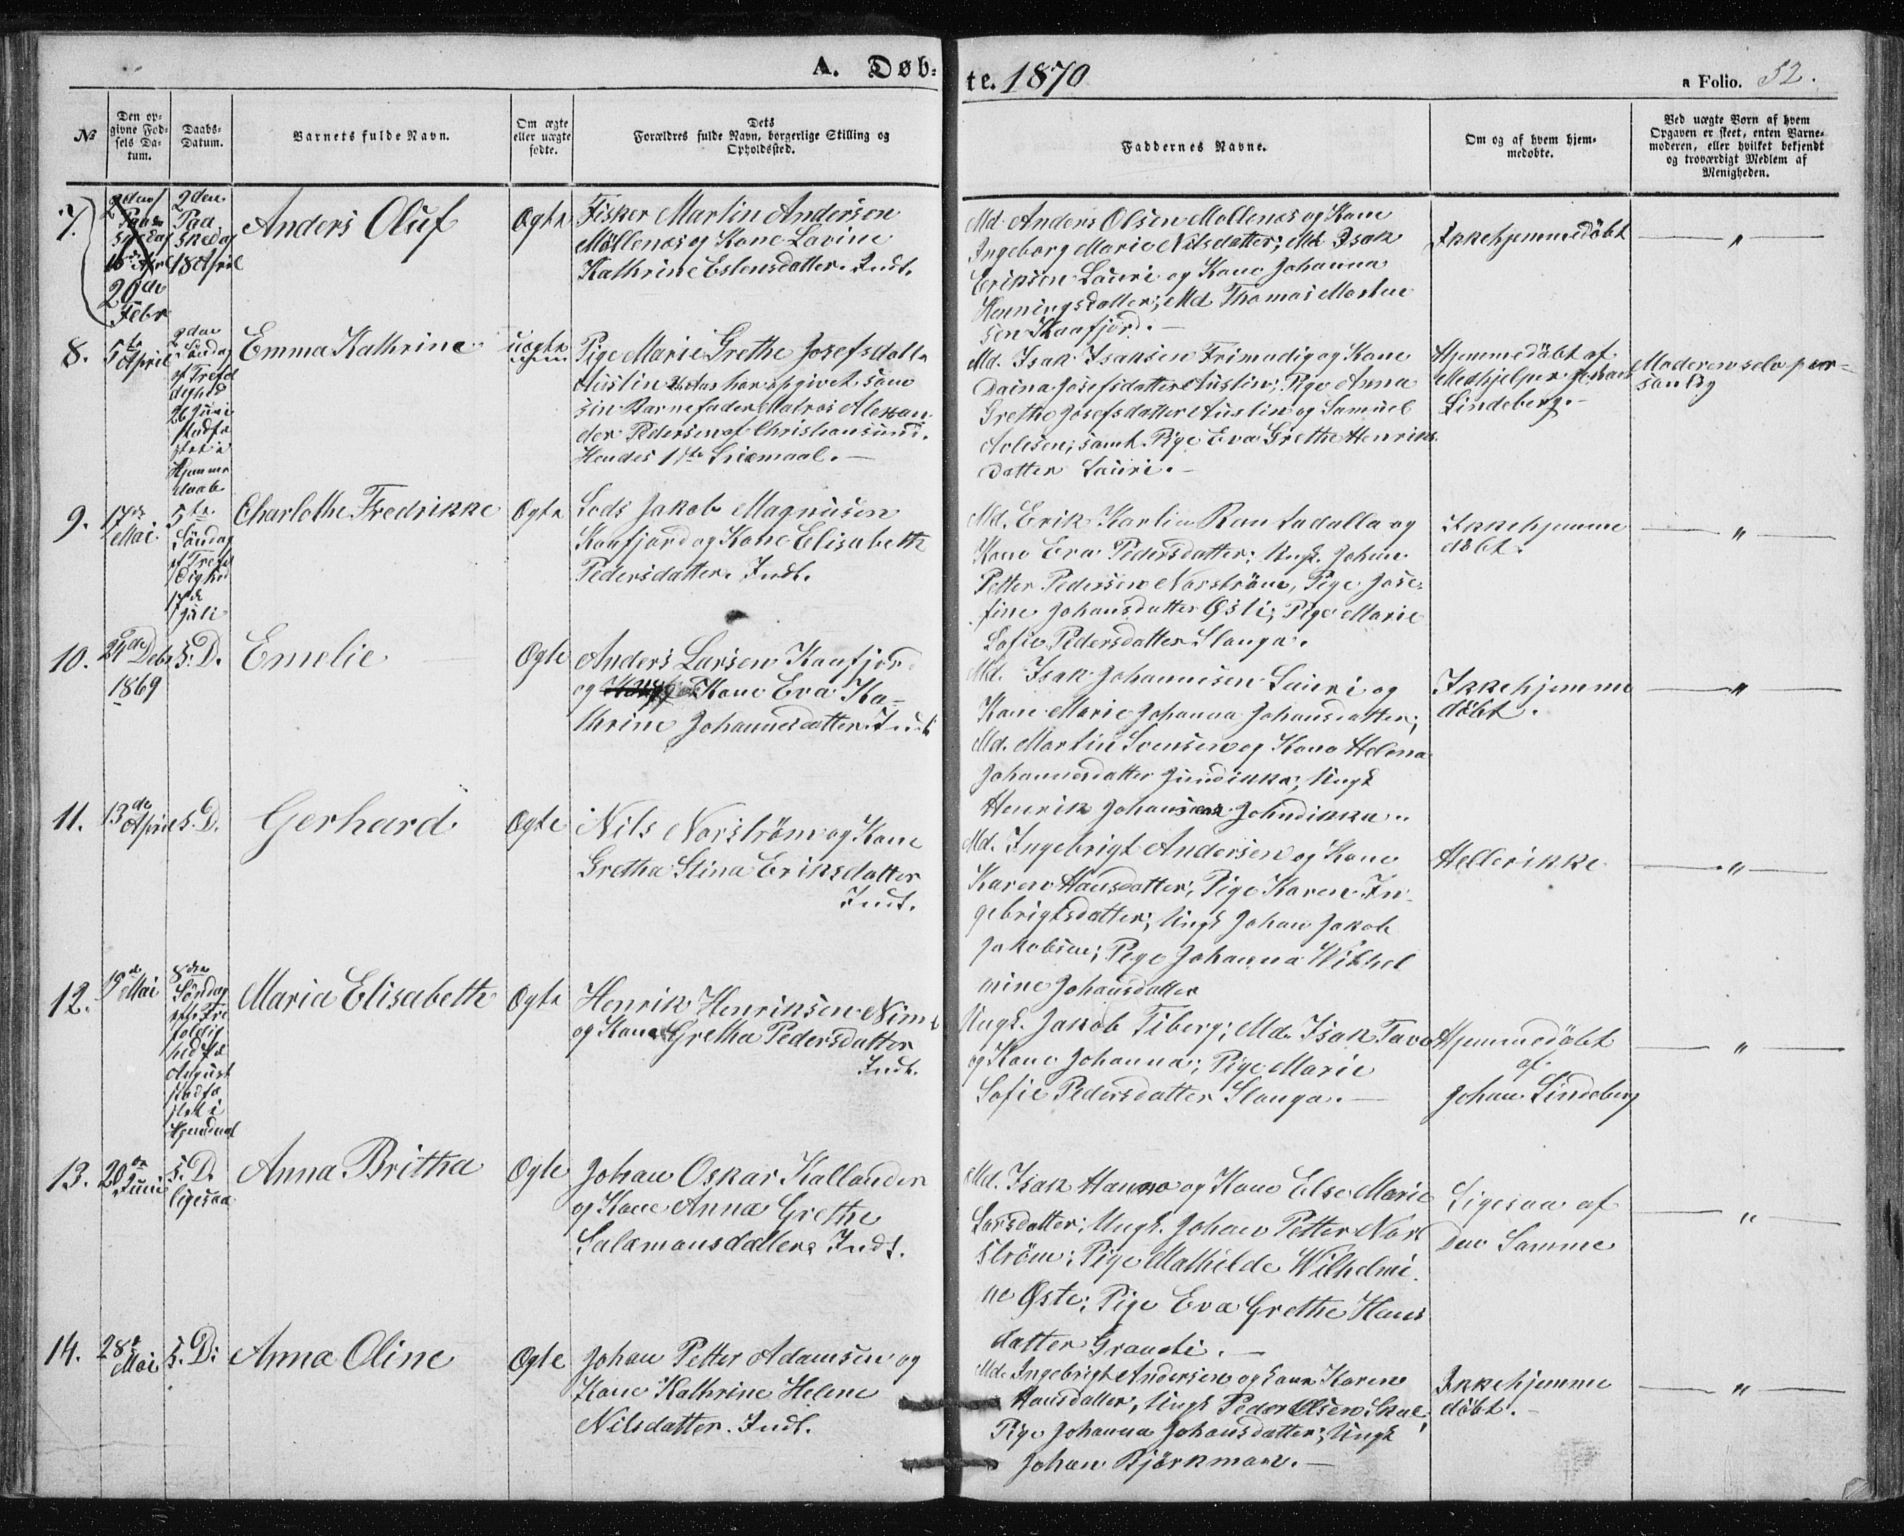 A. Døb-
te. 1870
a Folio. 52.
No
Den op-
givne Fød-
sels Da-
tum.
Daabs-
Datum.
Barnets fulde Navn.
Om ægte
eller uægte
fødte.
Dets
Forældres fulde Navn, borgerlige Stilling og
Opholdssted.
Faddernes Navne.
Om og af hvem hjem-
medøbte.
Ved uægte Børn af hvem
Opgaven er skeet, enten Barne-
moderen, eller hvilket bekjendt
og troværdigt Medlem af
Menigheden.
7.
20de
Febr
2den
Paa
skedag
18 April
Anders Oluf
Ægte
Fisker Martin Andersen
Møllenes og Kone Lavine
Kathrine Eslensdatter. Indt.
Md. Anders Olsen Mollenes og Kone
Ingeborg Marie Nilsdatter; Md Isak
Eriksen Lauri og Kone Johanna
Henningsdatter; Md Thomas Morten
sen Kaafjord.
Ikkehjemmedöbt
— " —
8.
5te
April
2den
Söndag
ef Trefol
dighds
26 Juni
stadfæ
stet i
Hjemme
daab
Emma Kathrine
uægte
Pige Marie Grethe Josefsdatt
Austin har opgivet som
sin Barnefader Matros Alexan
der Pedersen af Christiansund.
Hendes 1ste Leiemaal.
Md. Isak Isaksen Frimodig og Kone
Daina Josefsdatter Austin; Pige Anna
Grethe Josefsdatter Austin og Samuel
Aolesen; samt Pige Eva Grethe Henriks
datter Lauri.
Hjemmedöbt af
Medhjelper Johan
Lindeberg.
Moderen selv per-
sonlig
9.
17de
Mai.
5te
Söndag
ef Trefol
dighed
17de
Juli
Charlothe Fredrikke
Ægte
Lods Jakob Magnusen
Kaafjord og Kone Elisabeth
Pedersdatter. Indt.
Md. Erik Karlin Rautadalla og
Kone Eva Pedersdatter; Ungk. Johan
Petter Pedersen Norström, Pige Jose-
fine Johansdatter Østi; Pige Marie
Sofie Pedersdatter Slanga.
Ikkehjemme
döbt.
— " —
10.
24de Debr
1869
S. D.
Emelie
Ægte
Anders Larsen Kaafjord
og Kone Eva Ka-
thrine Johannesdatter. Indt
Md. Isak Johannesen Lauri og
Kone Marie Johanna Johansdatter;
Md. Martin Svensen og Kone Helena
Johannesdatter Jundikka; Ungk
Henrik Johansen Johndikka..
Ikkehjemme
döbt.
— " —
11.
13de
April
S. D.
Gerhard
Ægte
Nils Norström og Kone
Gretha Stina Eriksdatter
Indt.
Md. Ingebrigt Andersen og Kone
Karen Hansdatter; Pige Karen In-
gebrigtsdatter; Ungk Johan Jakob
Jakobsen; Pige Johanna Wilhel
mine Johansdatter
Hellerikke
— " —
12.
19de
Mai
8de
Söndag
efter Tre
foldig
hed 7de
August
stadfæ
stet i
Maria Elisabeth
Ægte
Henrik Henriksen Nimt
og Kone Gretha Pedersdatter
Indt.
Ungk. Jakob Fiberg; Md. Isak Tavo
og Kone Johanna; Pige Marie
Sofie Pedersdatter Slanga.
Hjemmedöbt
af
Johan Lindeberg
— " —
13.
20de
Juni
S. D.
ligesaa
Anna Britha
Ægte
Johan Oskar Kallander
og Kone Anna Grethe
Salamonsdatter. Indt.
Md. Isak Hanno og Kone Else Marie
Larsdatter; Ungk. Johan Petter Nor
ström; Pige Mathilde Wilhelmi
ne Øste; Pige Eva Grethe Hans
datter Granati.
Ligesaa af
Den Samme
— " —
14.
28de
Mai
S. D:
Anna Oline
Ægte
Johan Petter Adamsen og
Kone Kathrine Helene
Nilsdatter. Indt.
Md. Ingebrigt Andersen og Kone Karen
Hansdatter; Ungk Peder Olsen Skal;
Pige Johanna Johansdatter; Ungk
Johan Björkman.
Ikkehjemme
döbt.
— " —